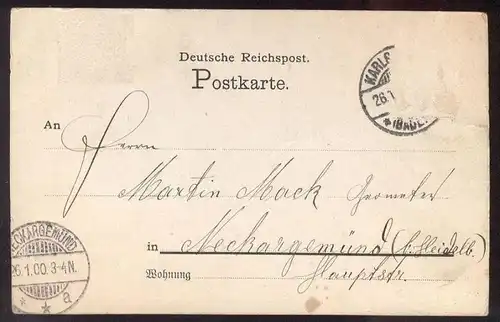 Deutsche Reichspost.
Postkarte.
KARLS
26.1
(BADE
An
Herrn
Martin Mack Geometer
in Neckargemünd (b. Heidelb.)
Wohnung Hauptstr.
NECKARGEMÜND
26.1.00.3-4N.
* * a